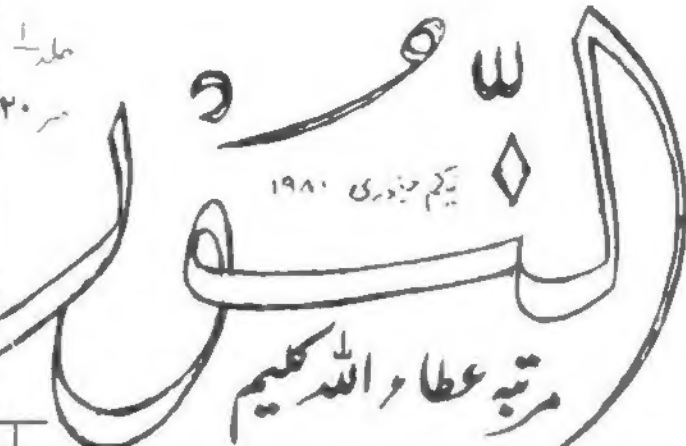 جلد ۱
النُّور
یکم جنوری ۱۹۸۰
مرتبہ عطاء اللہ کلیم